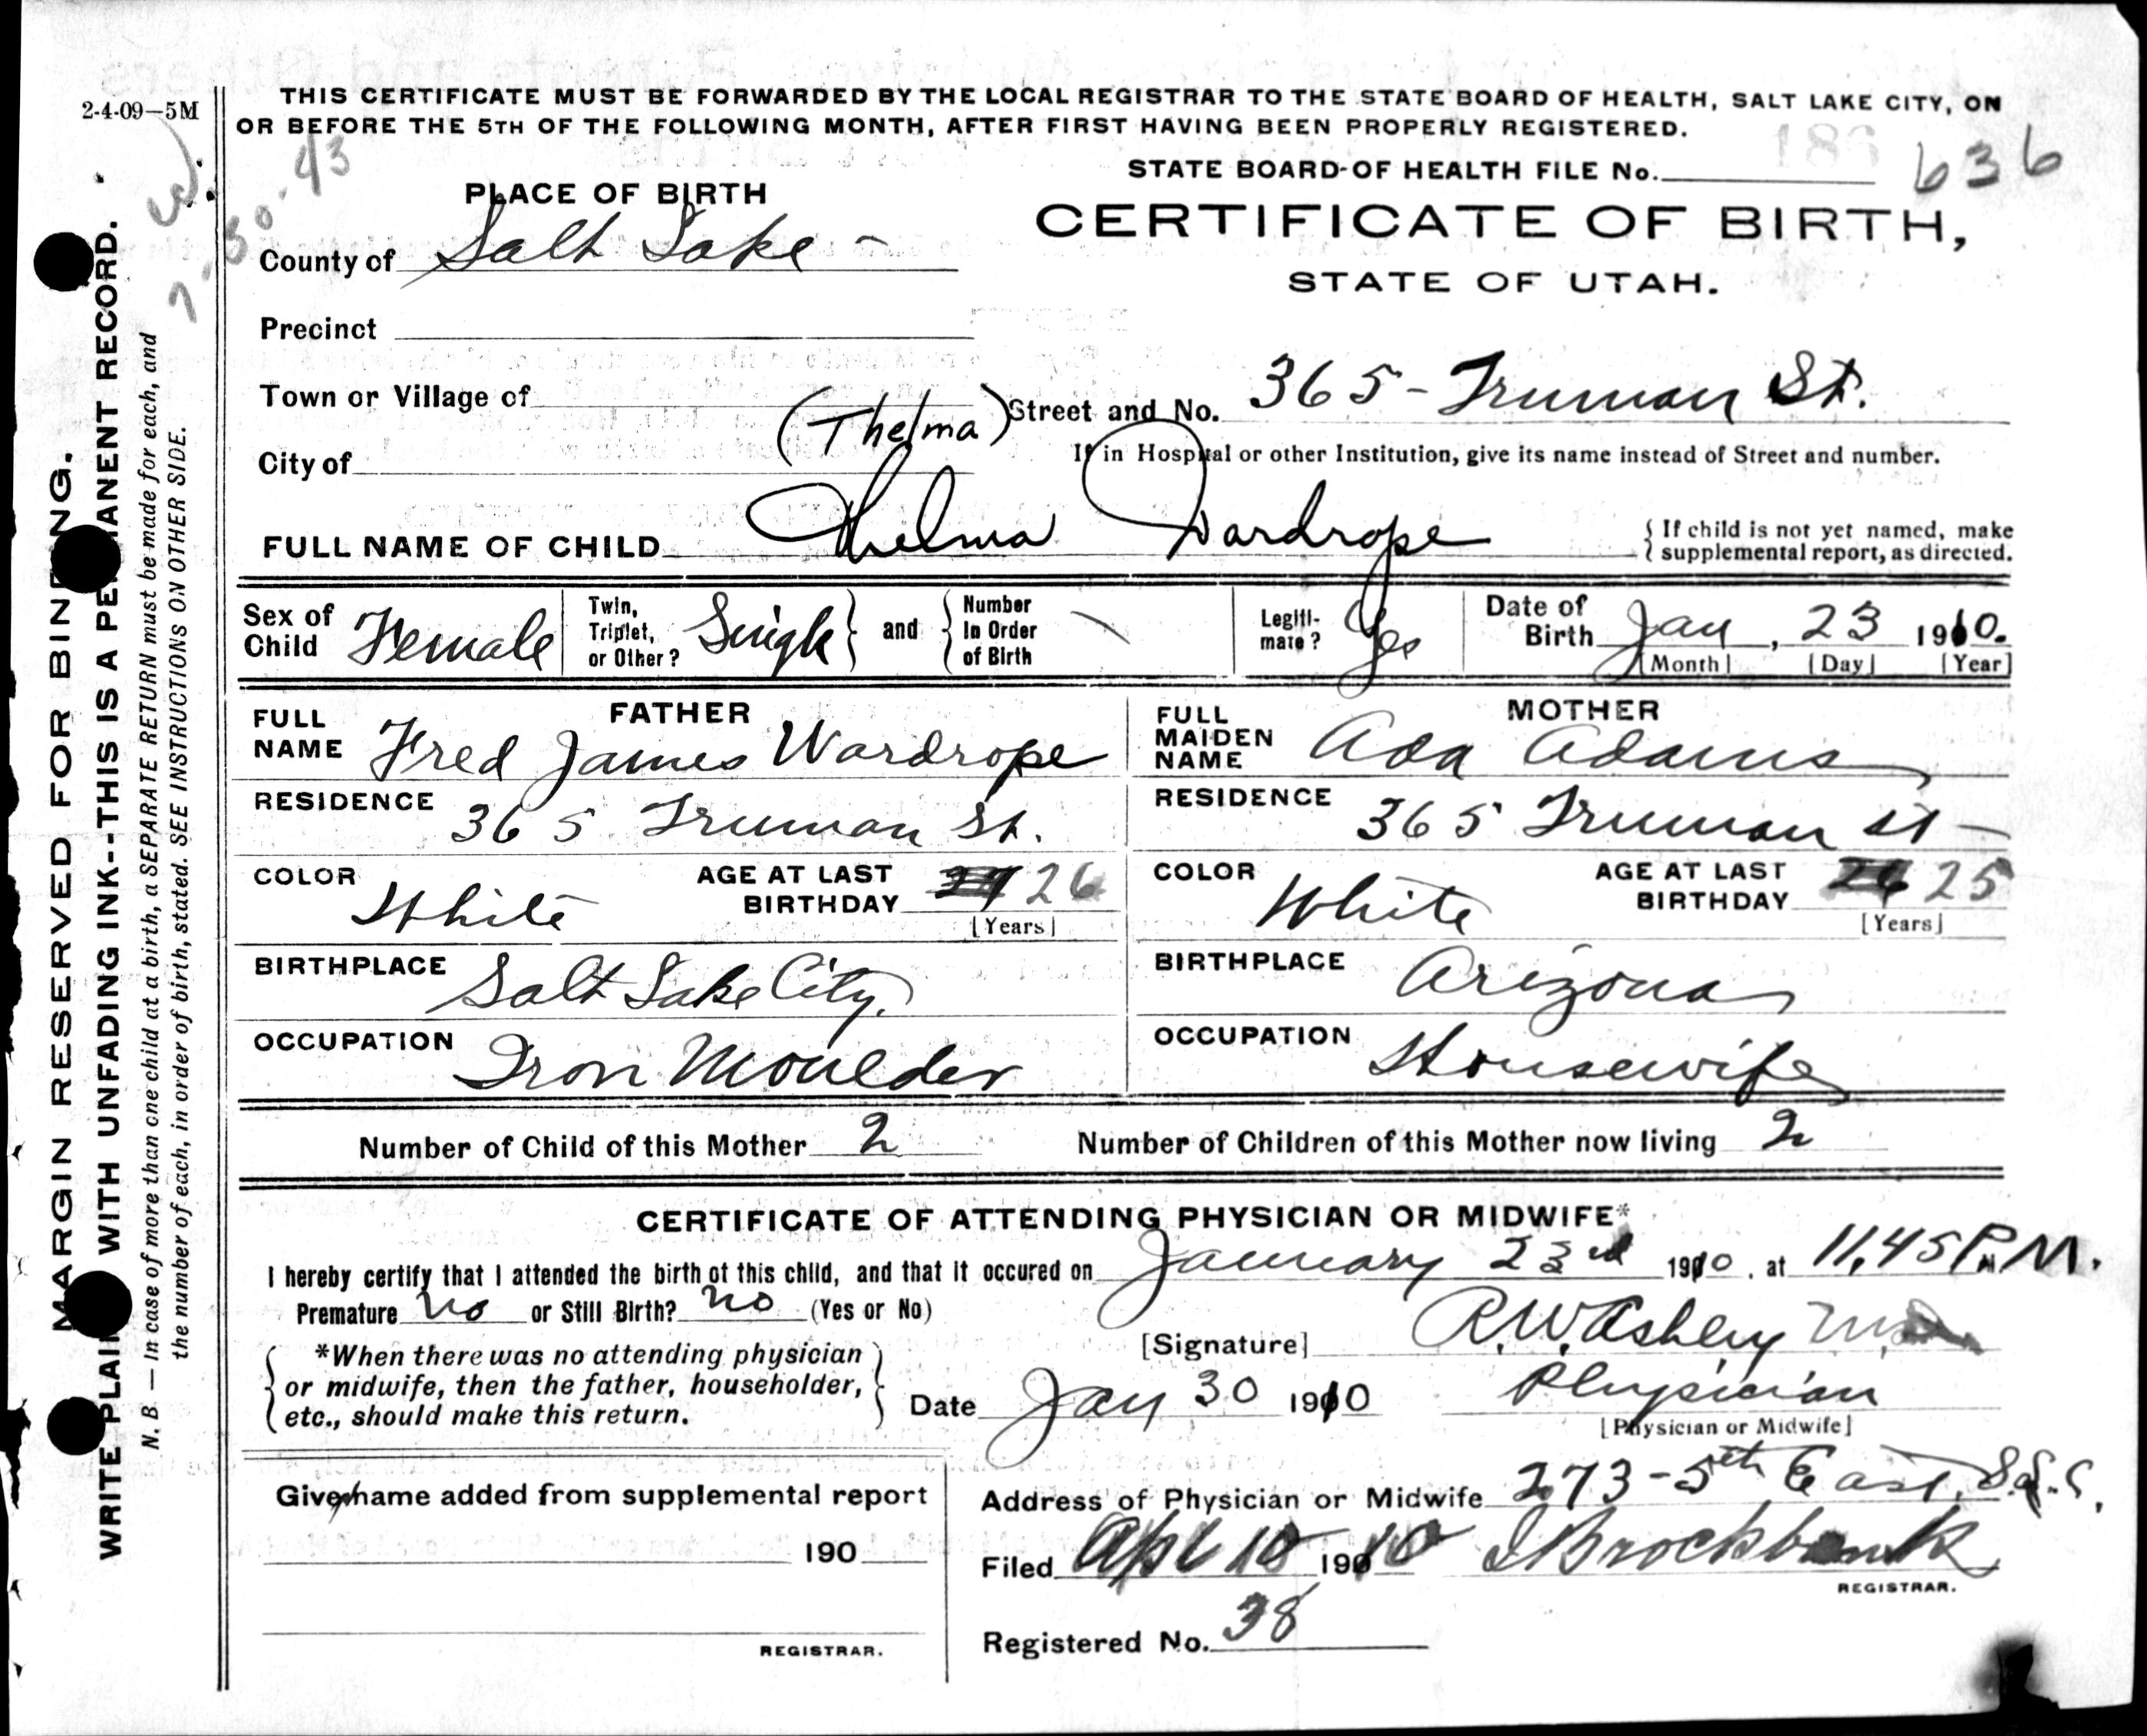 2-4-09—5M
THIS CERTIFICATE MUST BE FORWARDED BY THE LOCAL REGISTRAR TO THE STATE BOARD OF HEALTH, SALT LAKE CITY, ON
OR BEFORE THE 5TH OF THE FOLLOWING MONTH, AFTER FIRST HAVING BEEN PROPERLY REGISTERED.
STATE BOARD OF HEALTH FILE No. 636
PLACE OF BIRTH
CERTIFICATE OF BIRTH,
STATE OF UTAH.
County of Salt Lake -
Precinct
Town or Village of
(Thelma) Street and No. 365 - Truman St.
City of
If in Hospital or other Institution, give its name instead of Street and number.
FULL NAME OF CHILD Thelma Wardrope
{ If child is not yet named, make
supplemental report, as directed.
Sex of Child Female
Twin, Triplet, or Other? Single } and { Number In Order of Birth
Legiti- mate? Yes
Date of Birth Jan, 23 1910.
[Month] [Day] [Year]
FATHER
FULL NAME Fred James Wardrope
RESIDENCE 365 Truman St.
COLOR White
AGE AT LAST BIRTHDAY 26
[Years]
BIRTHPLACE Salt Lake City.
OCCUPATION Iron Moulder
MOTHER
FULL MAIDEN NAME Ada Adams
RESIDENCE 365 Truman St -
COLOR White
AGE AT LAST BIRTHDAY 25
[Years]
BIRTHPLACE Arizona
OCCUPATION Housewife
Number of Child of this Mother 2
Number of Children of this Mother now living 2
CERTIFICATE OF ATTENDING PHYSICIAN OR MIDWIFE*
I hereby certify that I attended the birth of this child, and that it occured on January 23rd 1910, at 11,45 P.M.
Premature no or Still Birth? no (Yes or No)
[Signature] R.W. Ashley
*When there was no attending physician
or midwife, then the father, householder,
etc., should make this return.
Date Jan 30 1910
Physician
[Physician or Midwife]
Given name added from supplemental report
190
REGISTRAR.
Address of Physician or Midwife 273 - 5th East, S.L.C.
Filed Apl 10 1910 Brockbank
REGISTRAR.
Registered No. 38
MARGIN RESERVED FOR BINDING.
WRITE PLAINLY WITH UNFADING INK--THIS IS A PERMANENT RECORD.
N. B. — In case of more than one child at a birth, a SEPARATE RETURN must be made for each, and
the number of each, in order of birth, stated. SEE INSTRUCTIONS ON OTHER SIDE.